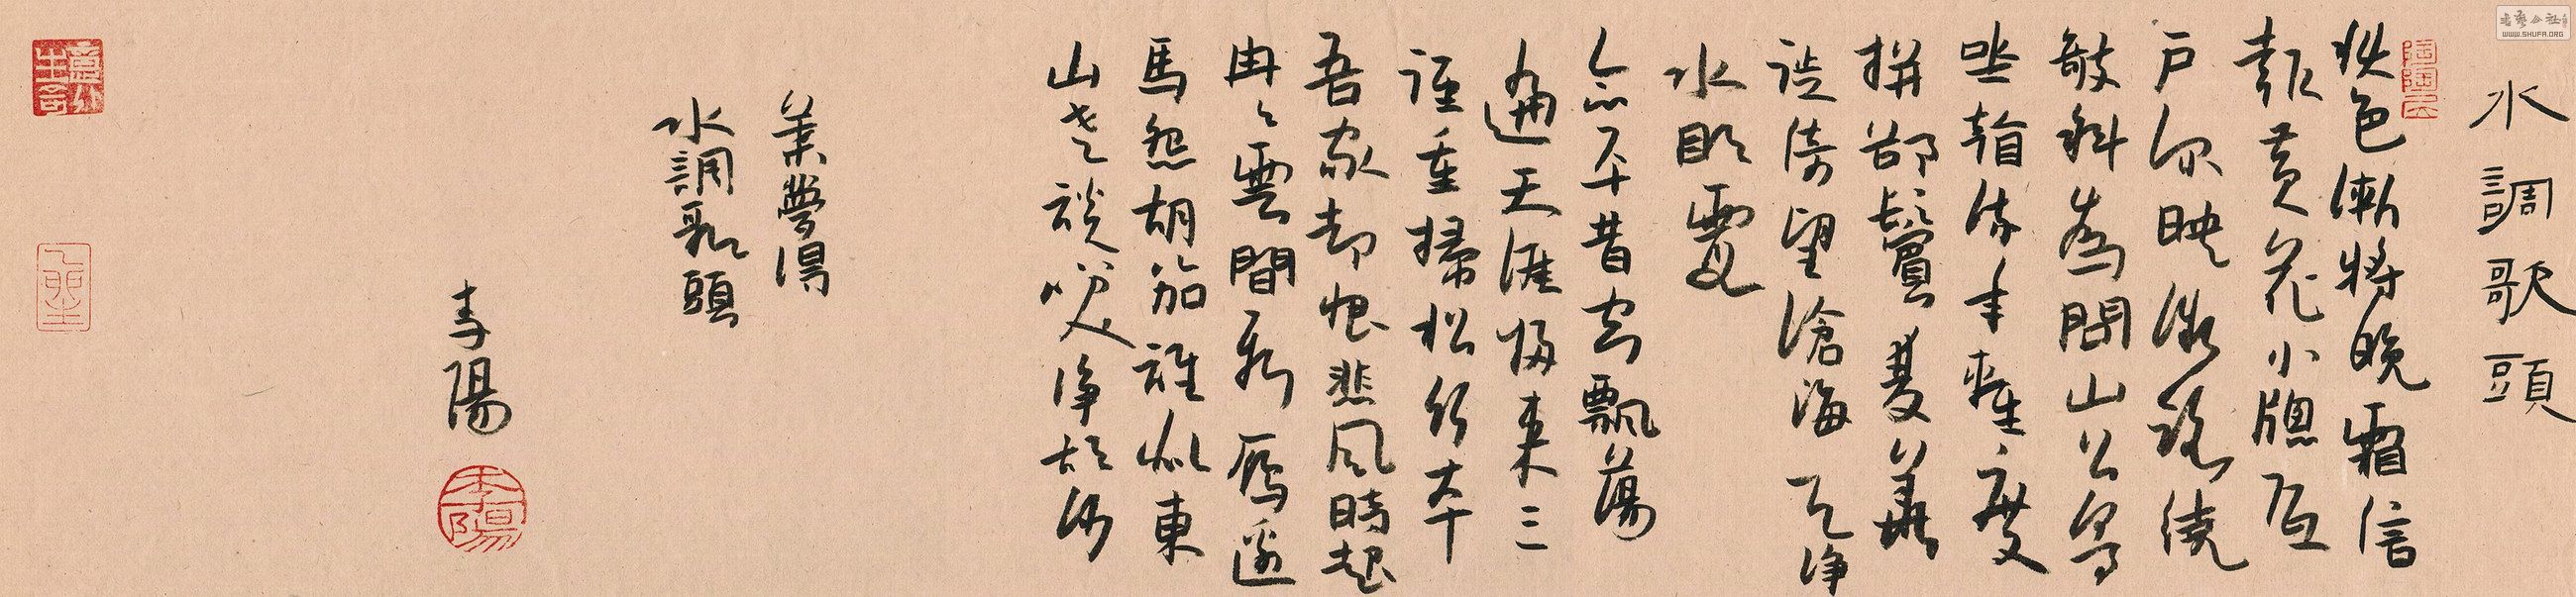 水調歌頭
秋色漸將晚霜信
報黃花小牕低
戶深映微路繞
敧斜為問山公
坐看流年輕度
拼却鬢雙華
徙倚望滄海天淨
水明霞
念平昔空飄蕩
遍天涯歸來三
徑重掃松竹本
吾家却恨悲風時起
冉々雲間新雁邊
馬怨胡笳誰似東
山老談笑淨胡沙
葉夢得
水調歌頭
李陽
李陽
WWW.SHUFA.ORG